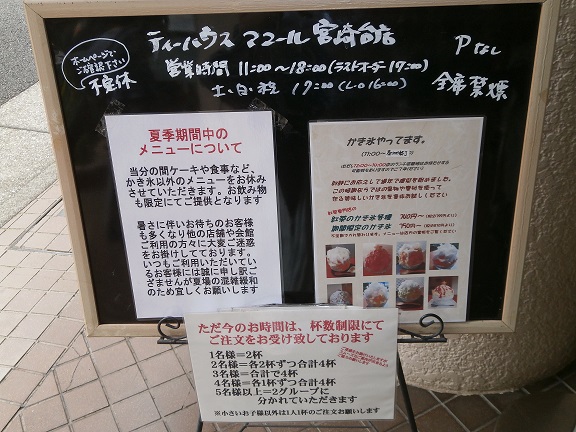 ティーハウス マユール 宮崎台店
Pなし
ホームページで
ご確認下さい
不定休
営業時間 11:00〜18:00(ラストオーダー17:00)
土、日、祝 17:00(L.O 16:00)
全席禁煙
夏季期間中の
メニューについて
当分の間ケーキや食事など、
かき氷以外のメニューをお休み
させていただきます。お飲み物
も限定にてご提供となります
暑さに伴いお待ちのお客様
も多くなり他の店舗や会館
ご利用の方々に大変ご迷惑
をお掛けしております。
いつもご利用いただいてい
るお客様には誠に申し訳ご
ざませんが夏場の混雑緩和
のため宜しくお願いします
かき氷やってます。
紅茶のかき氷各種 700円〜
期間限定のかき氷 750円〜
ただ今のお時間は、杯数制限にて
ご注文をお受け致しております
1名様=2杯
2名様=各2杯ずつ合計4杯
3名様=合計で4杯
4名様=各1杯ずつ合計4杯
5名様以上=2グループに
分かれていただきます
※小さいお子様以外は1人1杯のご注文お願いします